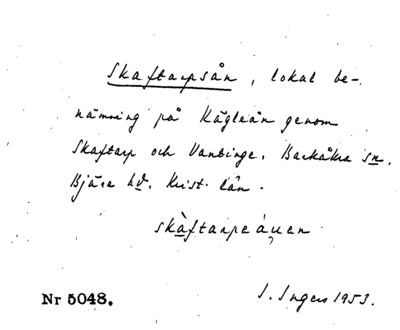 Skaftarpsån, lokal be-
nämning på Kägleån genom
Skaftarp och Vantinge. Barkåkra sn.
Bjäre hd. Krist. län.
skàftarpeáuen
Nr 5048. I. Ingers 1953.